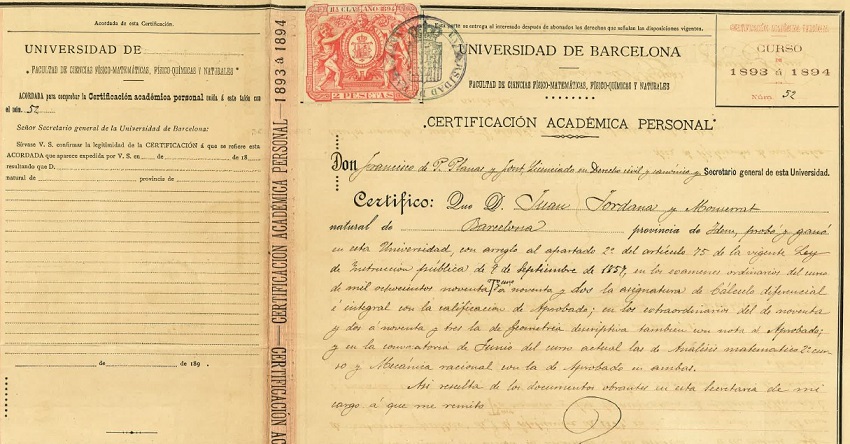 Acordada de esta Certificación.
UNIVERSIDAD DE
FACULTAD DE CIENCIAS FÍSICO-MATEMÁTICAS, FÍSICO-QUÍMICAS Y NATURALES
ACORDADA para comprobar la Certificación académica personal unida á este talón con
el núm. 52
Señor Secretario general de la Universidad de Barcelona:
Sírvase V. S. confirmar la legitimidad de la CERTIFICACIÓN á que se refiere esta
ACORDADA que aparece expedida por V. S. en de de 18
resultando que D.
natural de provincia de
de de 189 .
CERTIFICACIÓN ACADÉMICA PERSONAL — CERTIFICACIÓN ACADÉMICA PERSONAL — 1893 á 1894
11ª CLASE AÑO 1894
2 PESETAS
Esta parte se entrega al interesado después de abonados los derechos que señalan las disposiciones vigentes.
UNIVERSIDAD DE BARCELONA
FACULTAD DE CIENCIAS FÍSICO-MATEMÁTICAS, FÍSICO-QUÍMICAS Y NATURALES
CERTIFICACIÓN ACADÉMICA PERSONAL
CURSO
DE
1893 á 1894
Núm. 52
CERTIFICACIÓN ACADÉMICA PERSONAL
Don Francisco de P. Planas y Jovet Licenciado en Derecho civil y canónico y Secretario general de esta Universidad.
Certifico: Que D. Juan Jordana y Monserrat
natural de Barcelona provincia de Idem, probó y ganó
en esta Universidad, con arreglo al apartado 2º del artículo 75 de la vigente Ley
de Instrucción pública de 9 de Septiembre de 1857, en los exámenes ordinarios del curso
de mil ochocientos noventa y uno á noventa y dos la asignatura de Cálculo diferencial
é integral con la calificación de Aprobado; en los extraordinarios del de noventa
y dos á noventa y tres la de Geometría descriptiva tambien con nota de Aprobado;
y en la convocatoria de Junio del curso actual las de Análisis matemático 2º cur-
so y Mecánica racional con la de Aprobado en ambas.
Asi resulta de los documentos obrantes en esta Secretaría de mi
cargo á que me remito